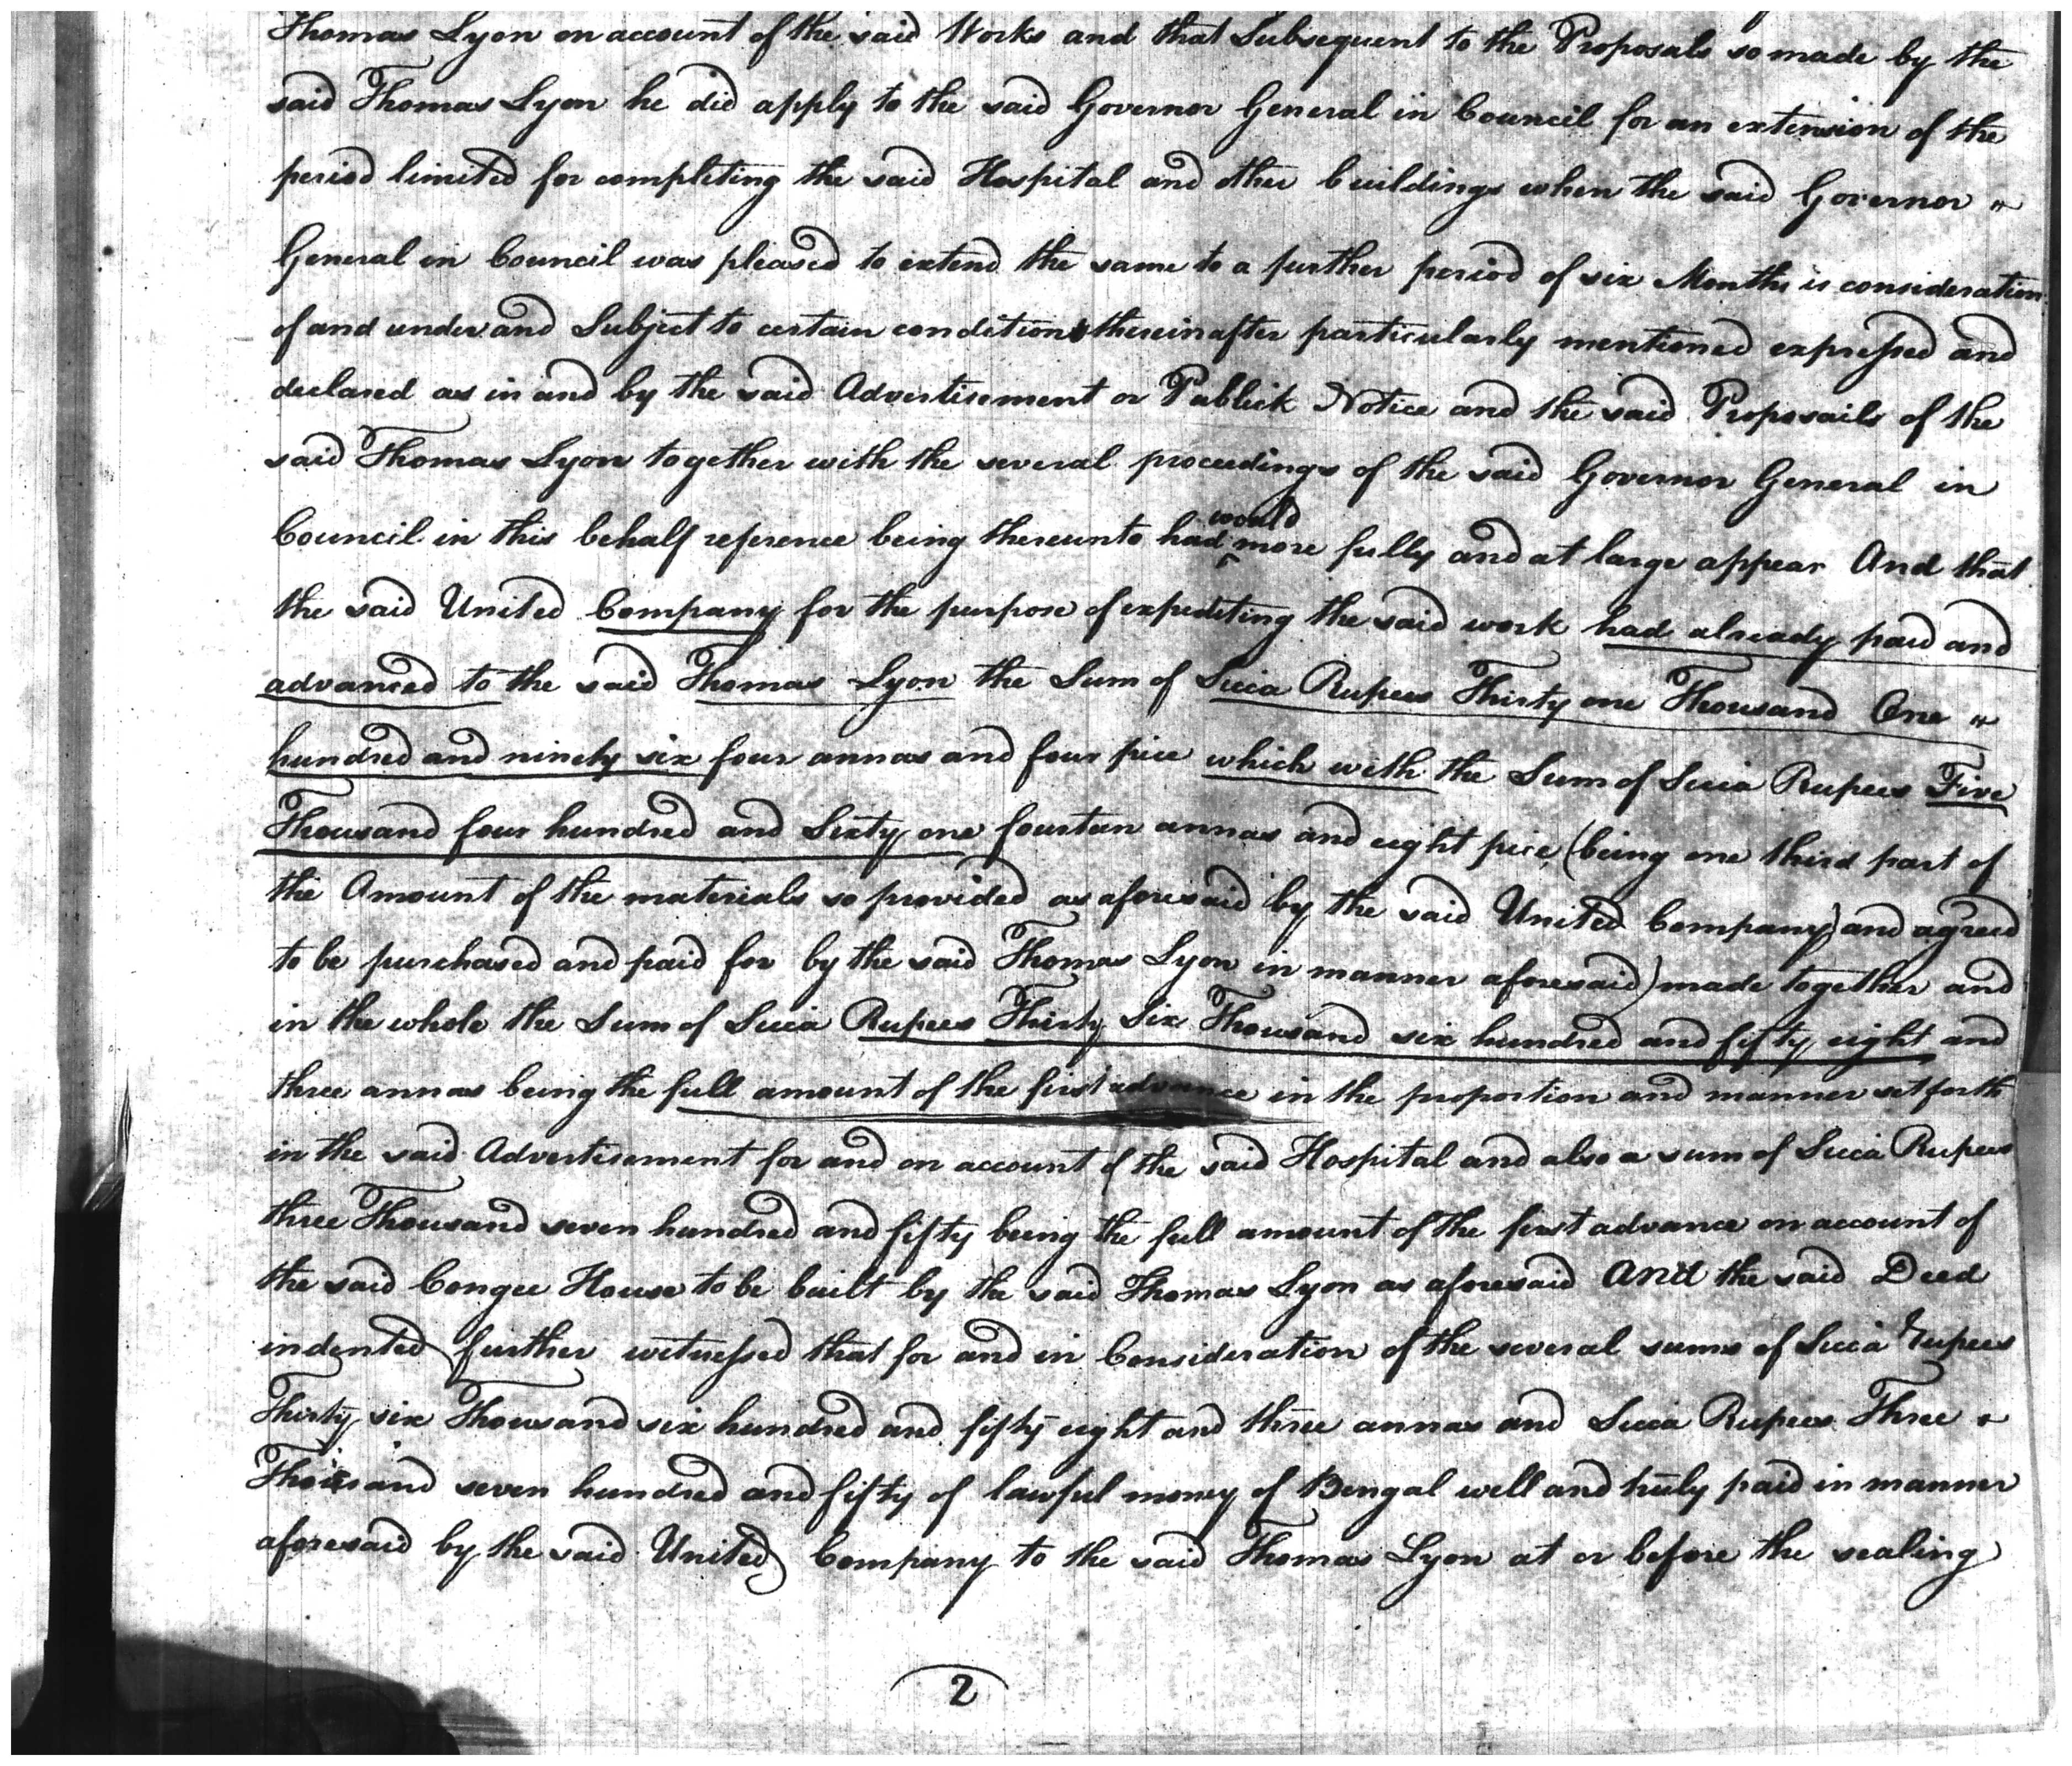 Thomas Lyon on account of the said Works and that Subsequent to the Proposals so made by the
said Thomas Lyon he did apply to the said Governor General in Council for an extension of the
period limited for completing the said Hospital and other buildings when the said Governor "
General in Council was pleased to extend the same to a further period of six Months is consideration
of and under and Subject to certain conditions thereinafter particularly mentioned expressed and
declared as in and by the said Advertisement or Publick Notice and the said Proposails of the
said Thomas Lyon together with the several proceedings of the said Governor General in
would
Council in this behalf reference being thereunto had more fully and at large appear And that
the said United Company for the purpose of expediting the said work had already paid and
advanced to the said Thomas Lyon the Sum of Sicca Rupees Thirty one Thousand One "
hundred and ninety six four annas and four pice which with the Sum of Sicca Rupees Five
Thousand four hundred and Sixty one fourteen annas and eight pice (being one third part of
the Amount of the materials so provided as aforesaid by the said United Company) and agreed
to be purchased and paid for by the said Thomas Lyon in manner aforesaid) made together and
in the whole the Sum of Sicca Rupees Thirty Six Thousand six hundred and fifty eight and
three annas being the full amount of the first advance in the proportion and manner set forth
in the said Advertisement for and on account of the said Hospital and also a sum of Sicca Rupees
three Thousand seven hundred and fifty being the full amount of the first advance on account of
the said Congee House to be built by the said Thomas Lyon as aforesaid And the said Deed
indented further witnessed that for and in Consideration of the several sums of Sicca rupees
Thirty six Thousand six hundred and fifty eight and three annas and Sicca Rupees Three "
Thousand seven hundred and fifty of lawful money of Bengal well and truly paid in manner
aforesaid by the said United Company to the said Thomas Lyon at or before the sealing
2